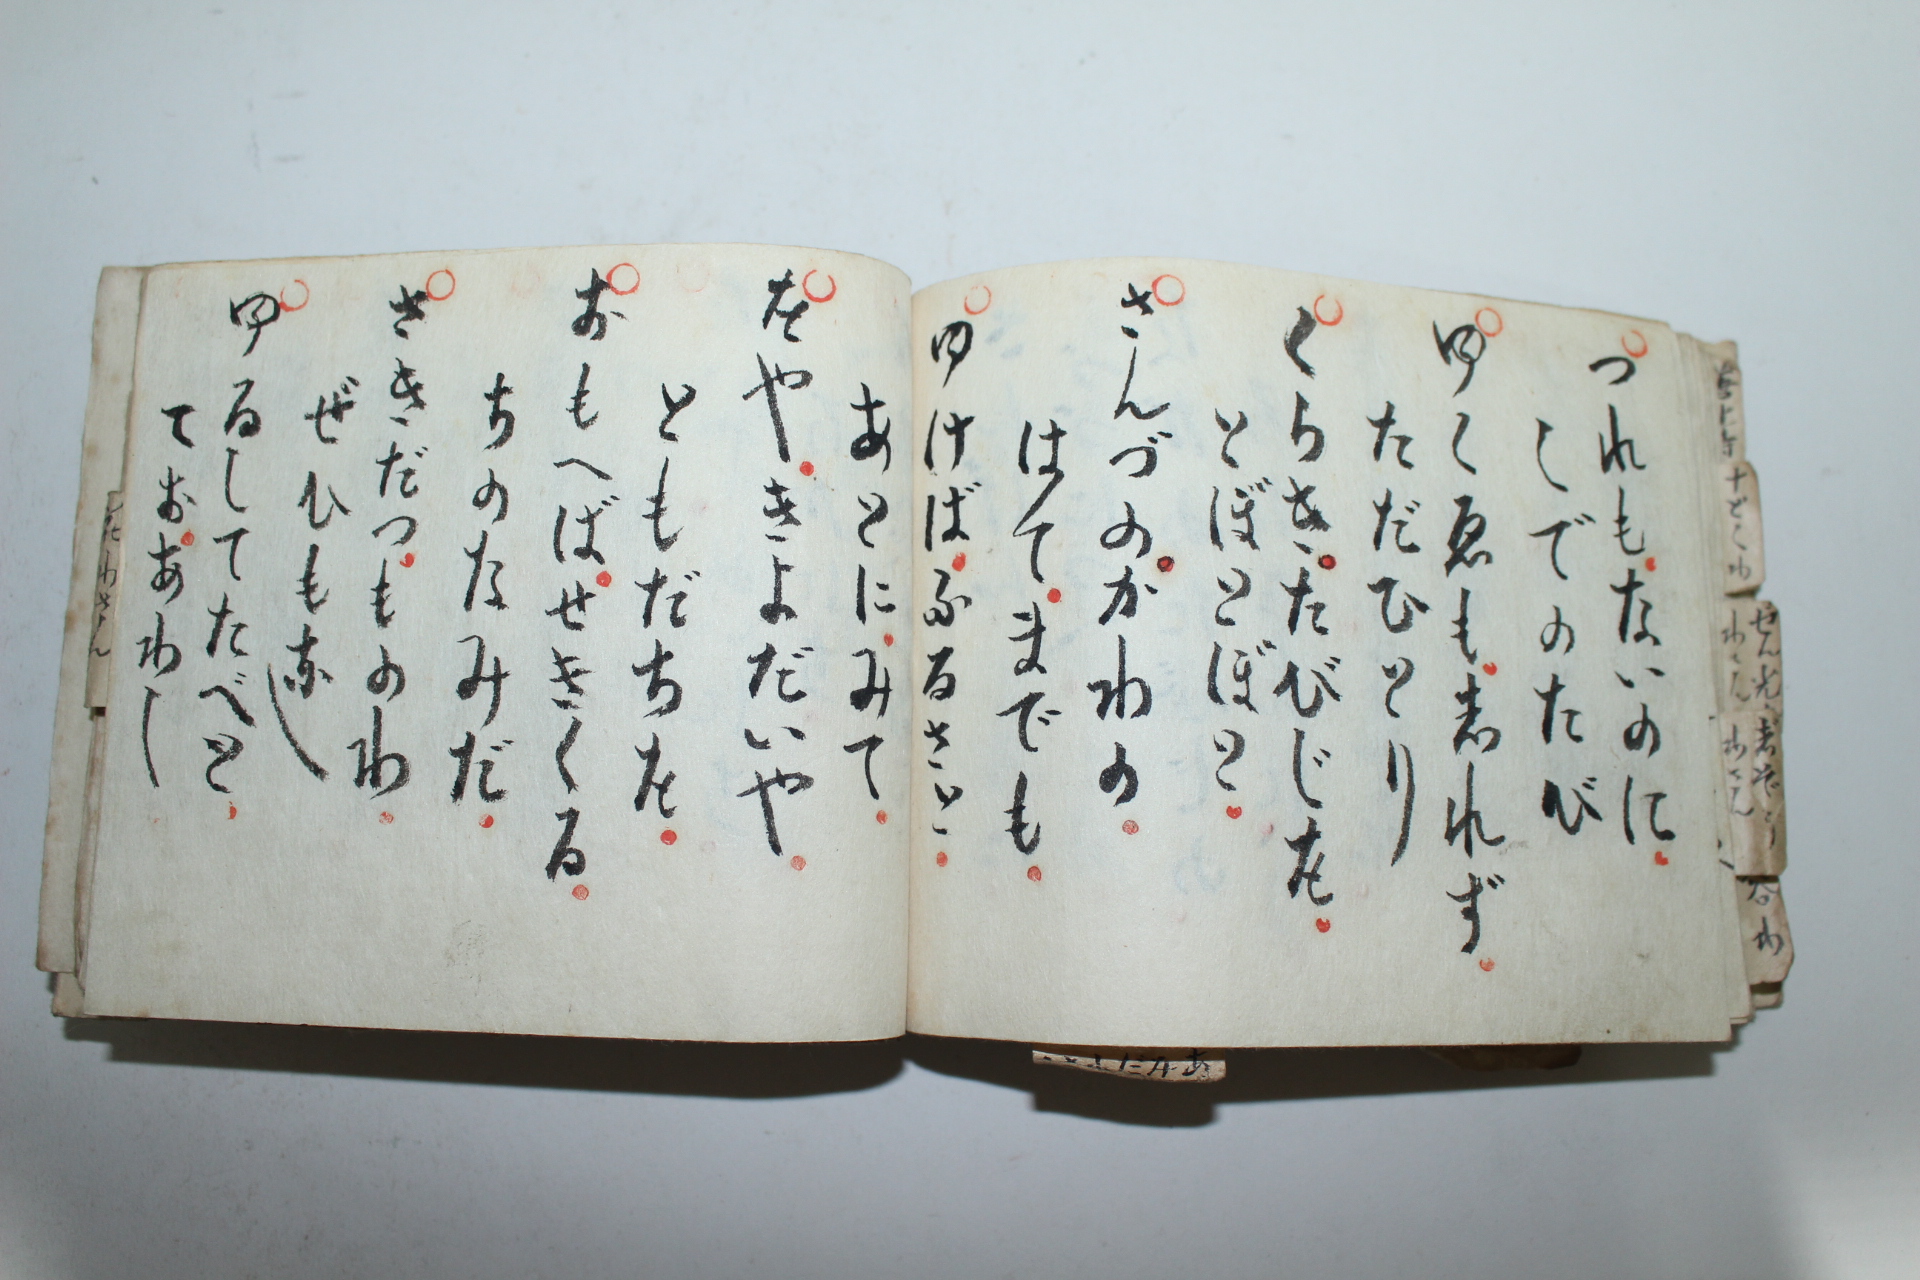 つれもないのに
しでのたび
ゆくゑも志れず
ただひとり
くらきたびじを
とぼとぼと
さんづのかわの
はてまでも
ゆけばふるさと
あとにみて
をやきよだいや
ともだちを
おもへばせきくる
ちのなみだ
さきだつものわ
ぜひもなし
ゆるしてたべと
ておあわし
わさん
わさん